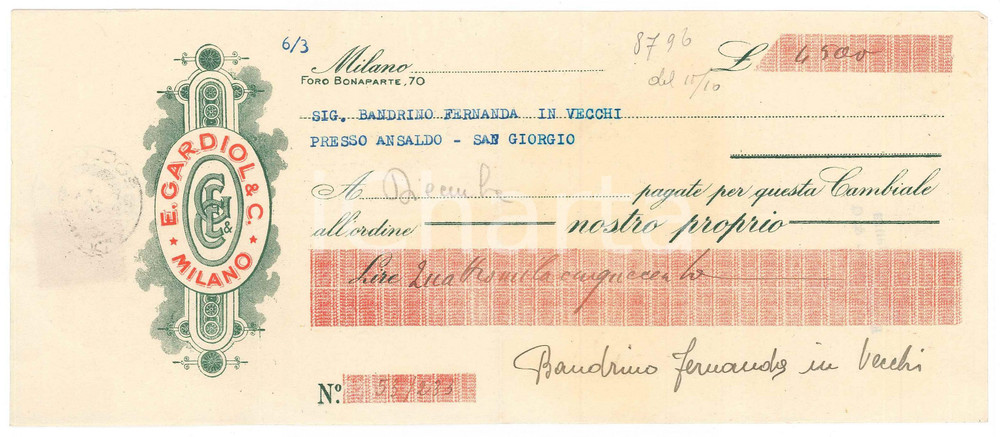 6/3
Milano
FORO BONAPARTE, 70
8796
del 10/10
£ 4500
SIG. BANDRINO FERNANDA IN VECCHI
PRESSO ANSALDO - SAN GIORGIO
A pagate per questa Cambiale
all'ordine nostro proprio
Lire Quattromilacinquecento
Bandrino Fernanda in Vecchi
Nº
★ E. GARDIOL & C. ★
MILANO
EG & C